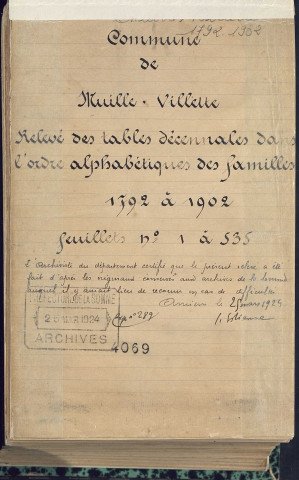 1792-1902
Commune
de
Muille-Villette
Relevé des tables décennales dans
l'ordre alphabétiques des familles
1792 à 1902
feuillets n° 1 à 535
L'Archiviste du département certifie que le présent relevé a été
fait d'après les originaux conservés aux archives de la Somme
auquel il y aurait lieu de recourir en cas de difficultés
Amiens le 25 mars 1924
PREFECTURE DE LA SOMME
25 MAR 1924
ARCHIVES
n° 289
4069